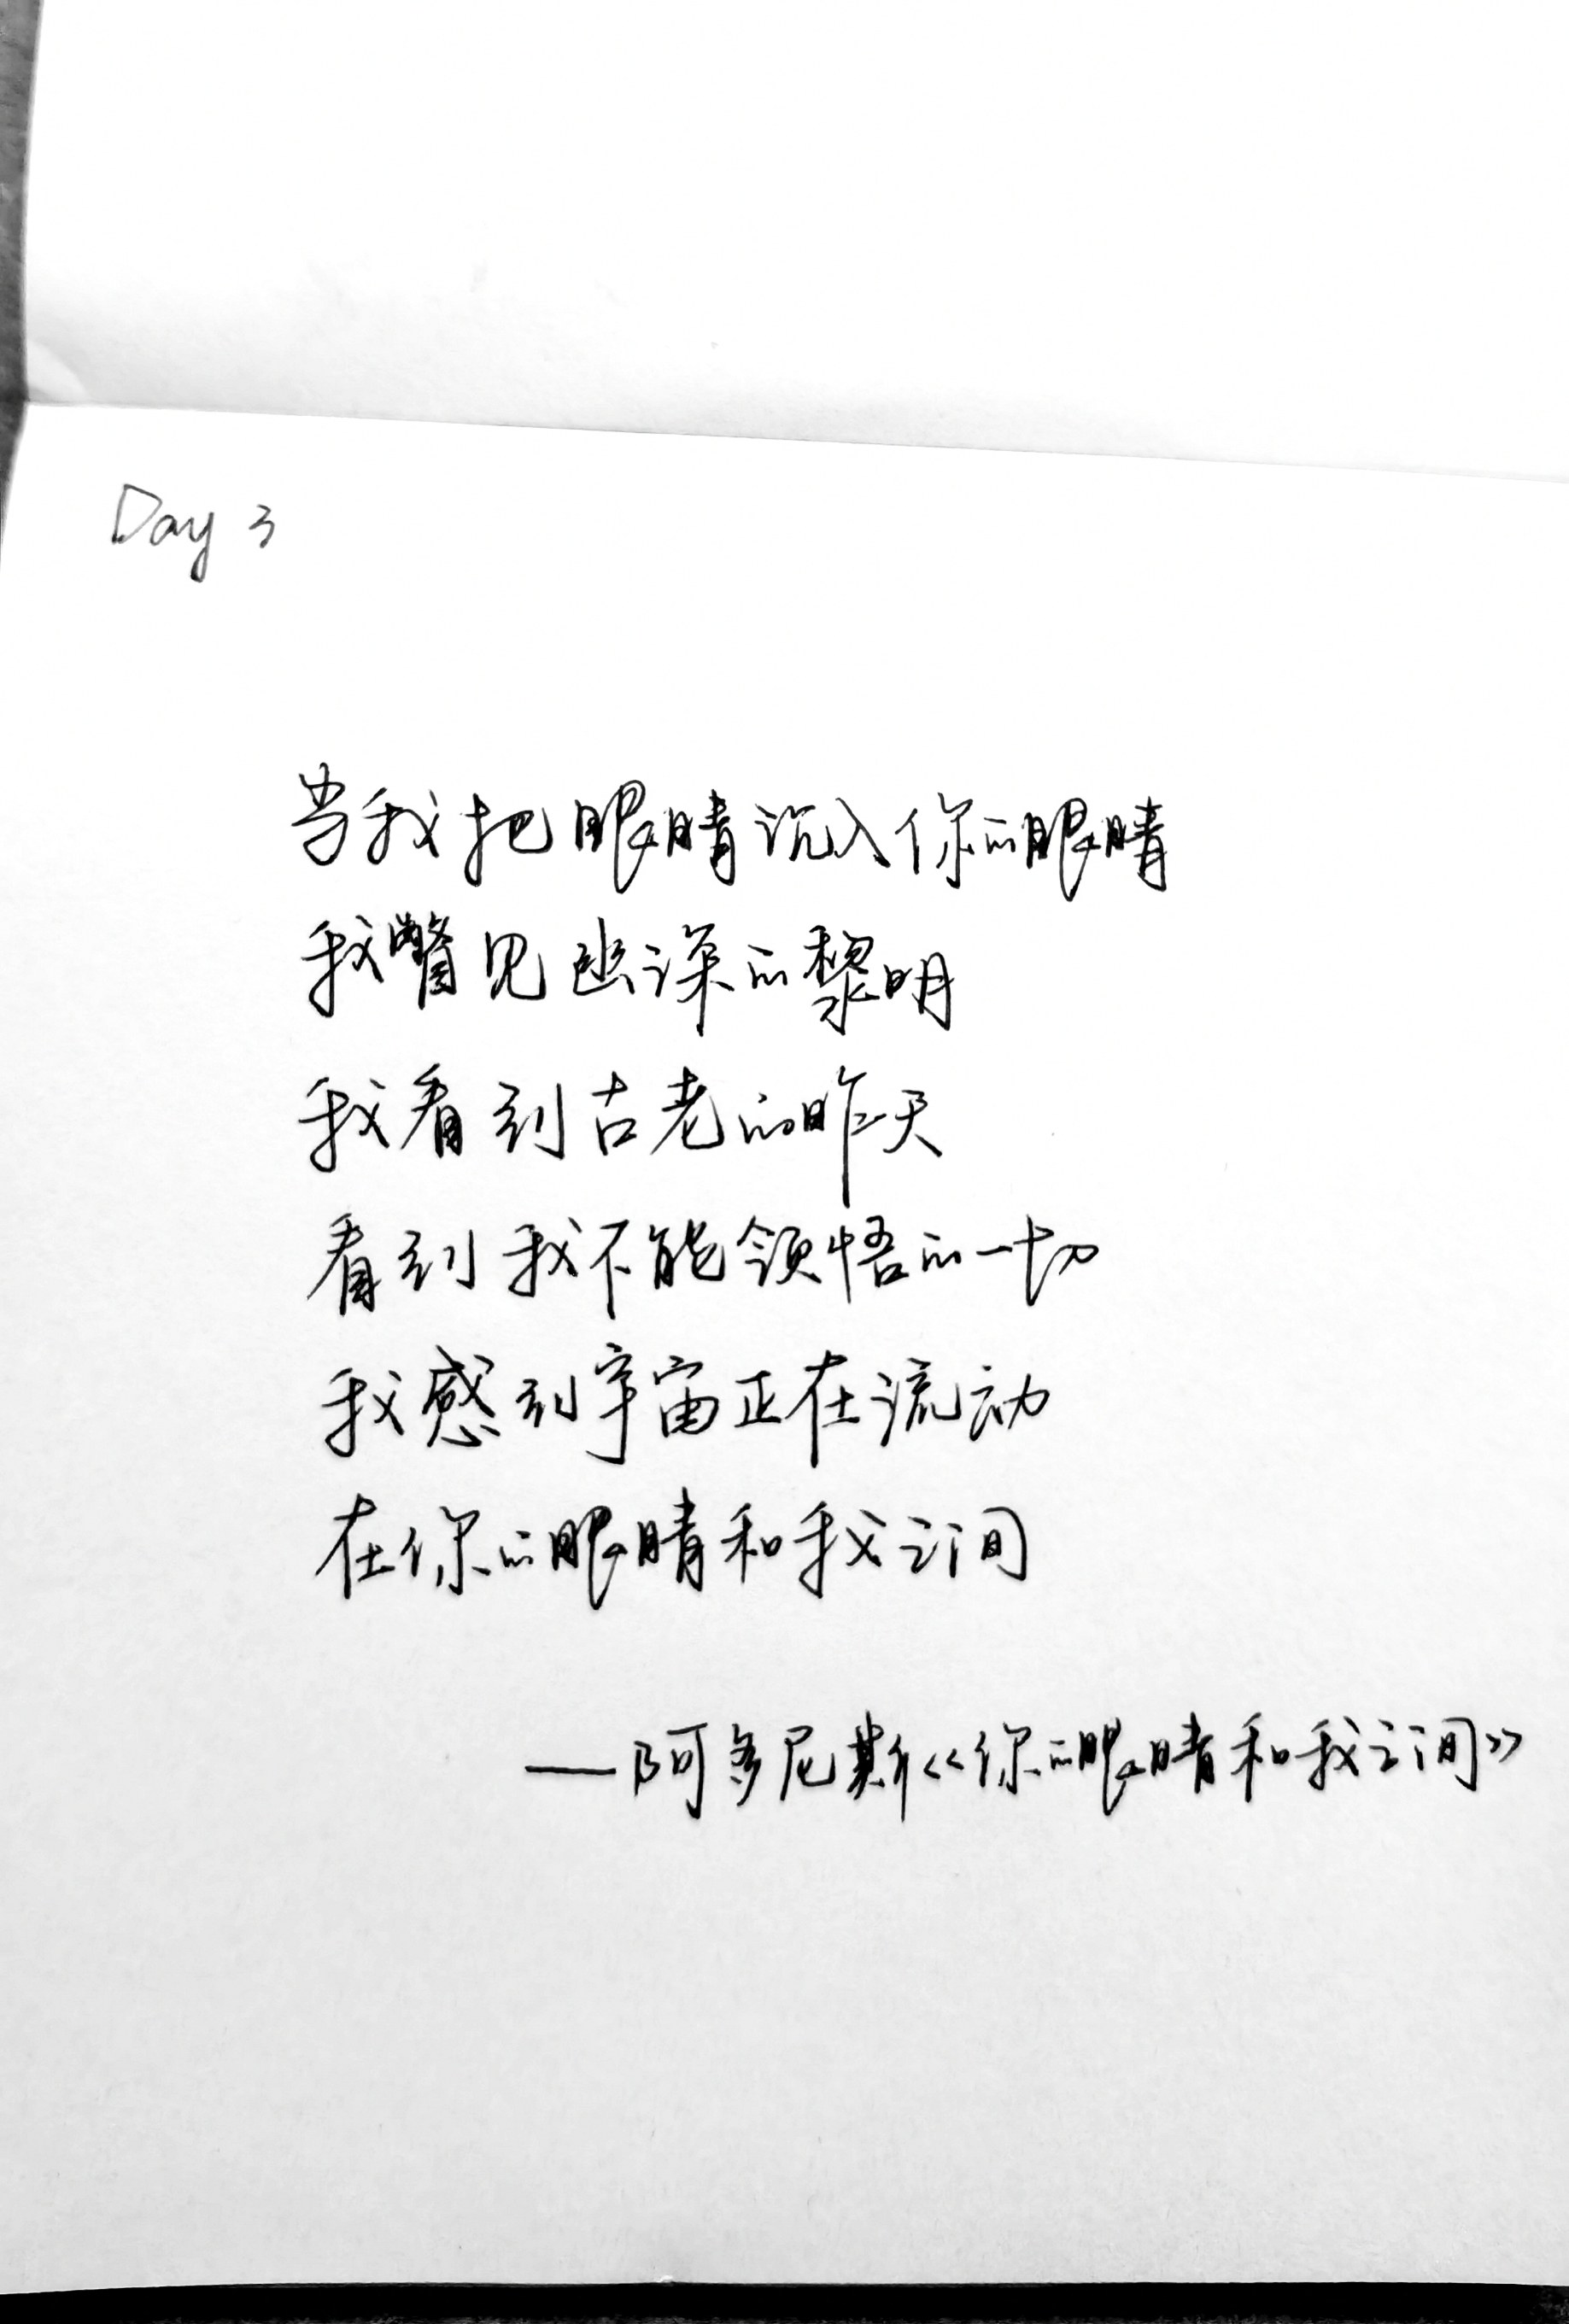 Day 3
当我把眼睛沉入你的眼睛
我瞥见幽深的黎明
我看到古老的昨天
看到我不能领悟的一切
我感到宇宙正在流动
在你的眼睛和我之间
——阿多尼斯《你的眼睛和我之间》